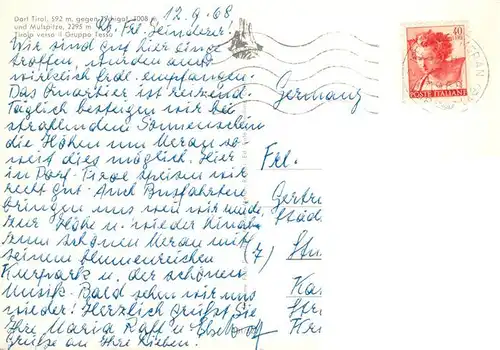 Dorf Tirol, 592 m, gegen Tschigat, 3008 m
und Mutspitze, 2295 m
Tirolo verso il Gruppo Tessa
12.9.68
Lb. Frl.
Wir sind gut hier einge
troffen, wurden auss
wirklich frdl. empfangen.
Das Quartier ist reizend.
Täglich besteigen wir bei
strahlendem Sonnenschein
die Höhen um Meran so-
weit dies möglich. Hier
in Dorf-Tirol speisen wir
recht gut. Auch Busfahrten
bringen uns wenn wir müde,
zur Höhe u. wieder hinab
zum schönen Meran mit
seinem blumenreichen
Kurpark u. der schönen
Musik. Bald sehn wir uns
wieder! Herzlich grüßt Sie
Ihre Maria Raff u.
Grüße an Ihre Lieben.
Germany
Frl.
Gertr
Städ
(7) Stu
Ka
Str
Kr
40
POSTE ITALIANE
MERAN